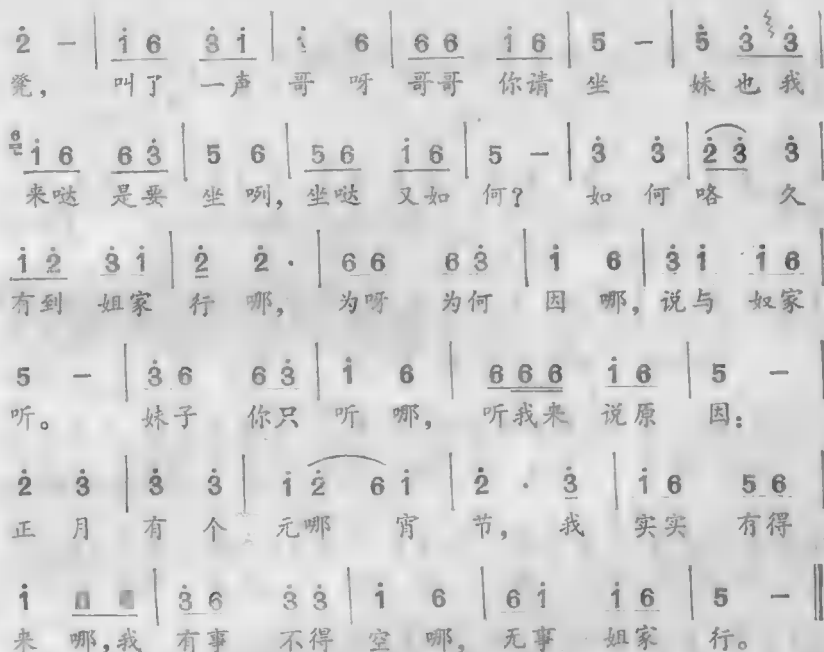 2̇ – | 1̇ 6 3̇ 1̇ | 1̇ 6 | 6 6 1̇ 6 | 5 – | 5̇ 3̇ 3̇ |
凳， 叫了 一声 哥 呀 哥哥 你请 坐 妹 也 我
1̇ 6 6 3̇ | 5 6 | 5 6 1̇ 6 | 5 – | 3̇ 3̇ | 2̇ 3̇ 3̇ |
来哒 是要 坐 咧，坐哒 又如 何？ 如 何 咯 久
1̇ 2̇ 3̇ 1̇ | 2̇ 2̇ · | 6 6 6 3̇ | 1̇ 6 | 3̇ 1̇ 1̇ 6 |
有到 姐家 行 哪， 为呀 为何 因 哪，说与 奴家
5 – | 3̇ 6 6 3̇ | 1̇ 6 | 6 6 6 1̇ 6 | 5 – |
听。 妹子 你只 听 哪， 听我来 说原 因：
2̇ 3̇ | 3̇ 3̇ | 1̇ 2̇ 6 1̇ | 2̇ · 3̇ | 1̇ 6 5 6 |
正 月 有 个 元哪 宵 节， 我 实实 有得
1̇ | 3̇ 6 3̇ 3̇ | 1̇ 6 | 6 1̇ 1̇ 6 | 5 – ‖
来 哪，我 有事 不得 空 哪， 无事 姐家 行。